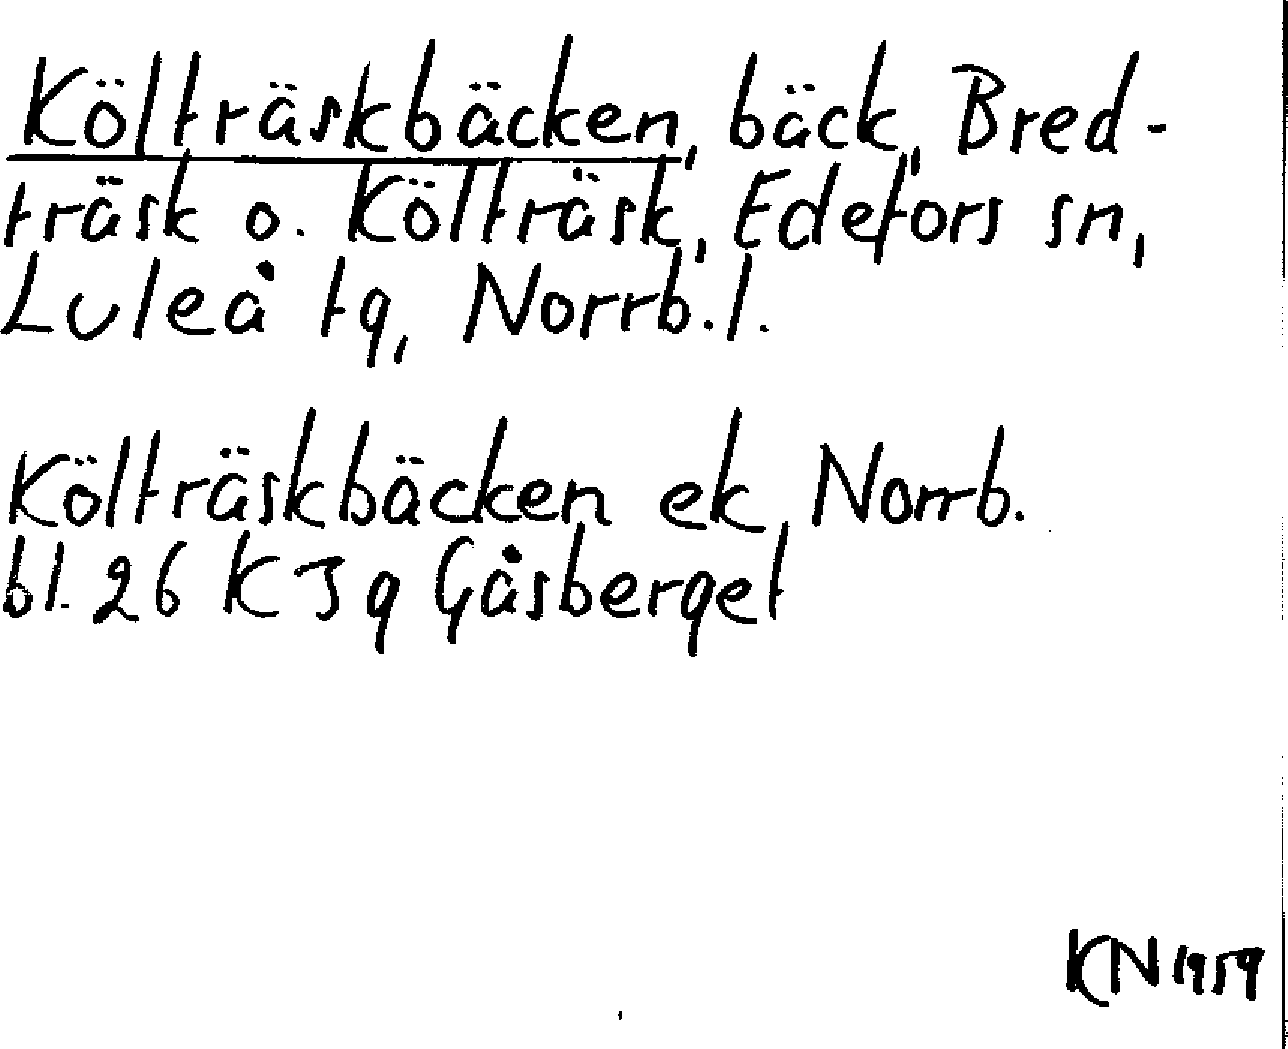 Költräskbäcken, bäck, Bred-
träsk o. Költräsk, Edefors sn,
Luleå tg, Norrb. l.
Költräskbäcken ek, Norrb.
bl. 26 K J g Gåsberget
KN 1959